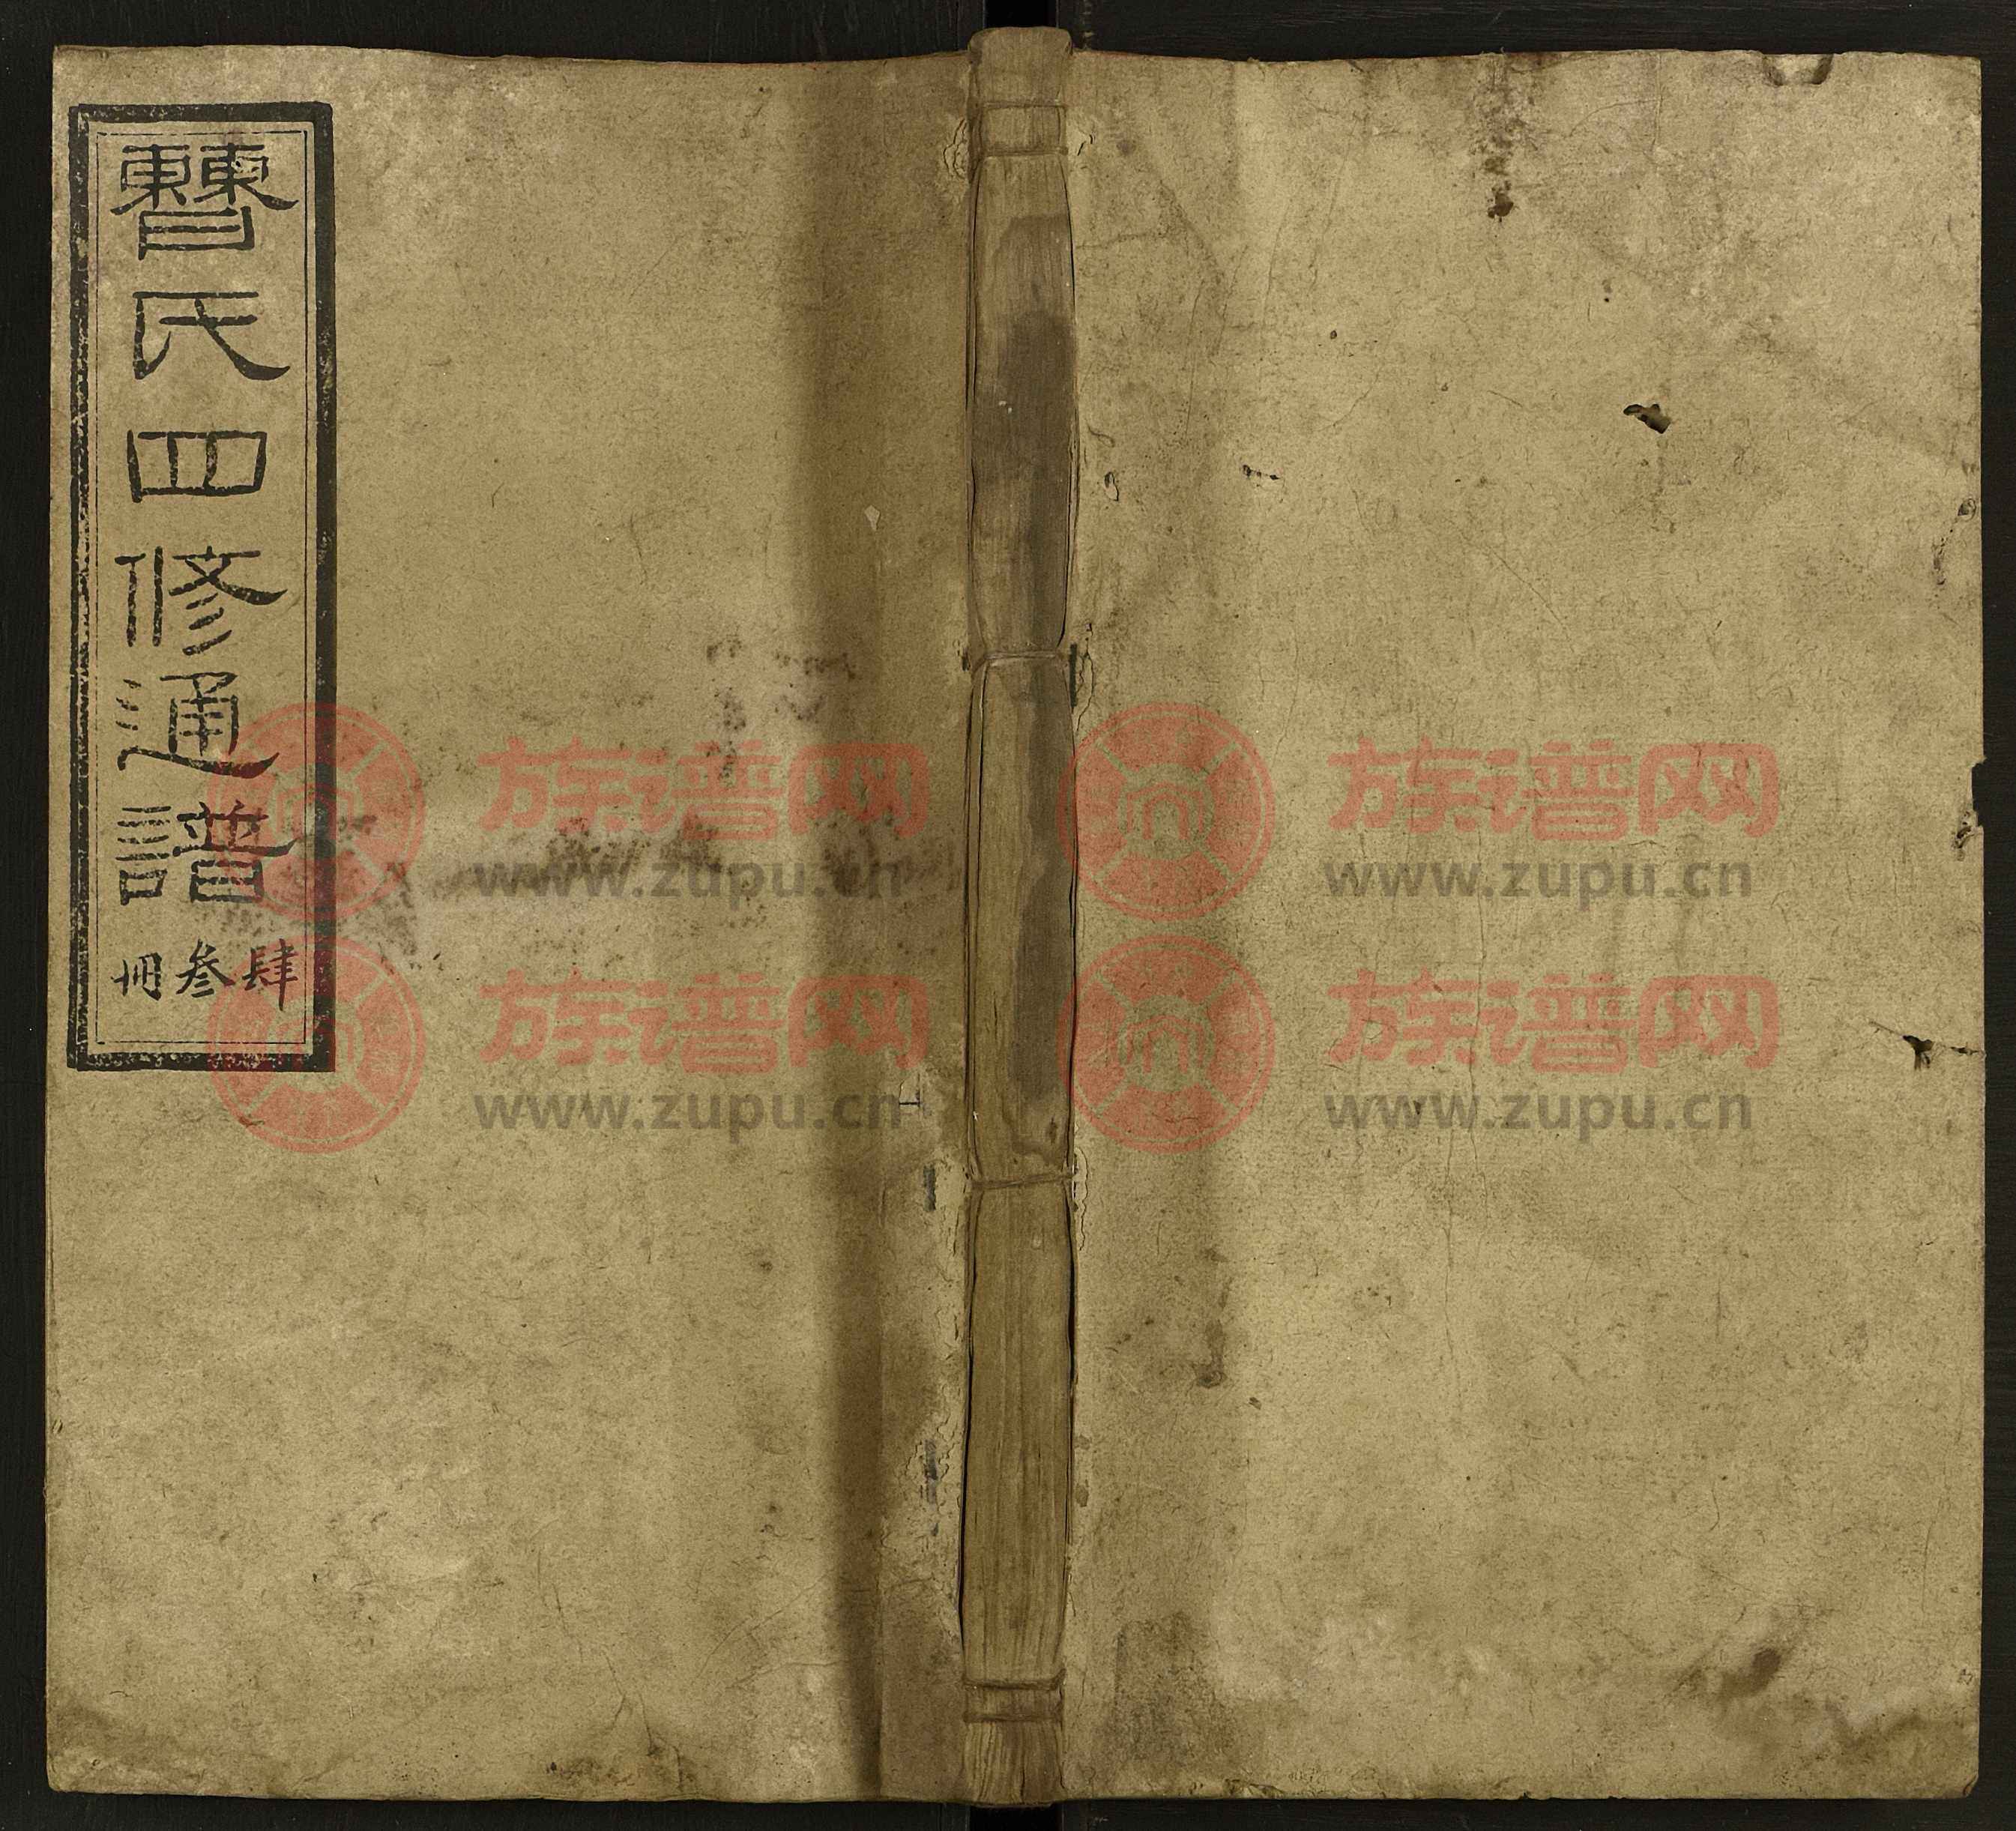 曹氏四修通譜
肆叄冊
族谱网
www.zupu.cn
族谱网
www.zupu.cn
族谱网
www.zupu.cn
族谱网
www.zupu.cn